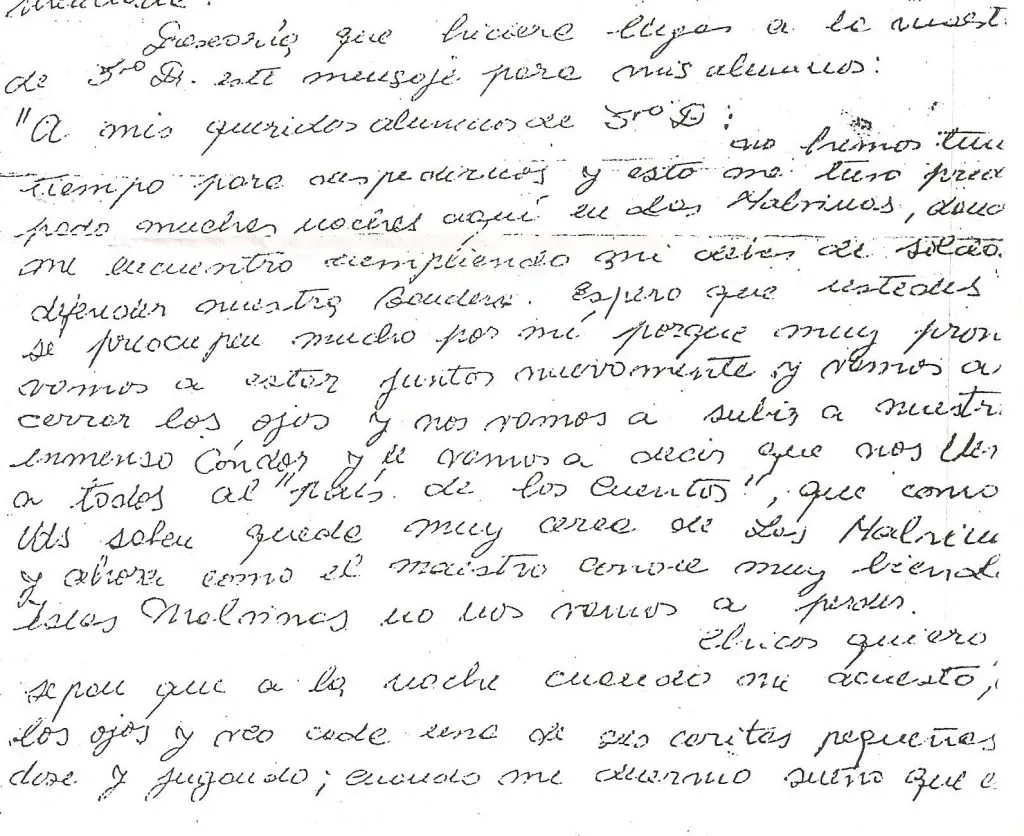 Desearía que hiciera llegar a la maest
de 3ro D. este mensaje para mis alumnos:
"A mis queridos alumnos de 3ro D:
no hemos teni
tiempo para despedirnos y esto me tuvo preo
pado muchas noches aquí en Las Malvinas, dond
me encuentro cumpliendo mi deber de soldado
defender nuestra bandera. Espero que ustedes
se preocupen mucho por mí porque muy pron
vamos a estar juntos nuevamente y vamos a
cerrar los ojos y nos vamos a subir a nuestr
inmenso Cóndor y le vamos a decir que nos lle
a todos al "país de los cuentos", que como
Uds saben queda muy cerca de Las Malvin
y ahora como el maestro conoce muy bien l
Islas Malvinas no nos vamos a perder.
Chicos quiero
sepan que a la noche cuando me acuesto,
los ojos y veo cada una de sus caritas pequeñas
dose y jugando; cuando me duermo sueño que e